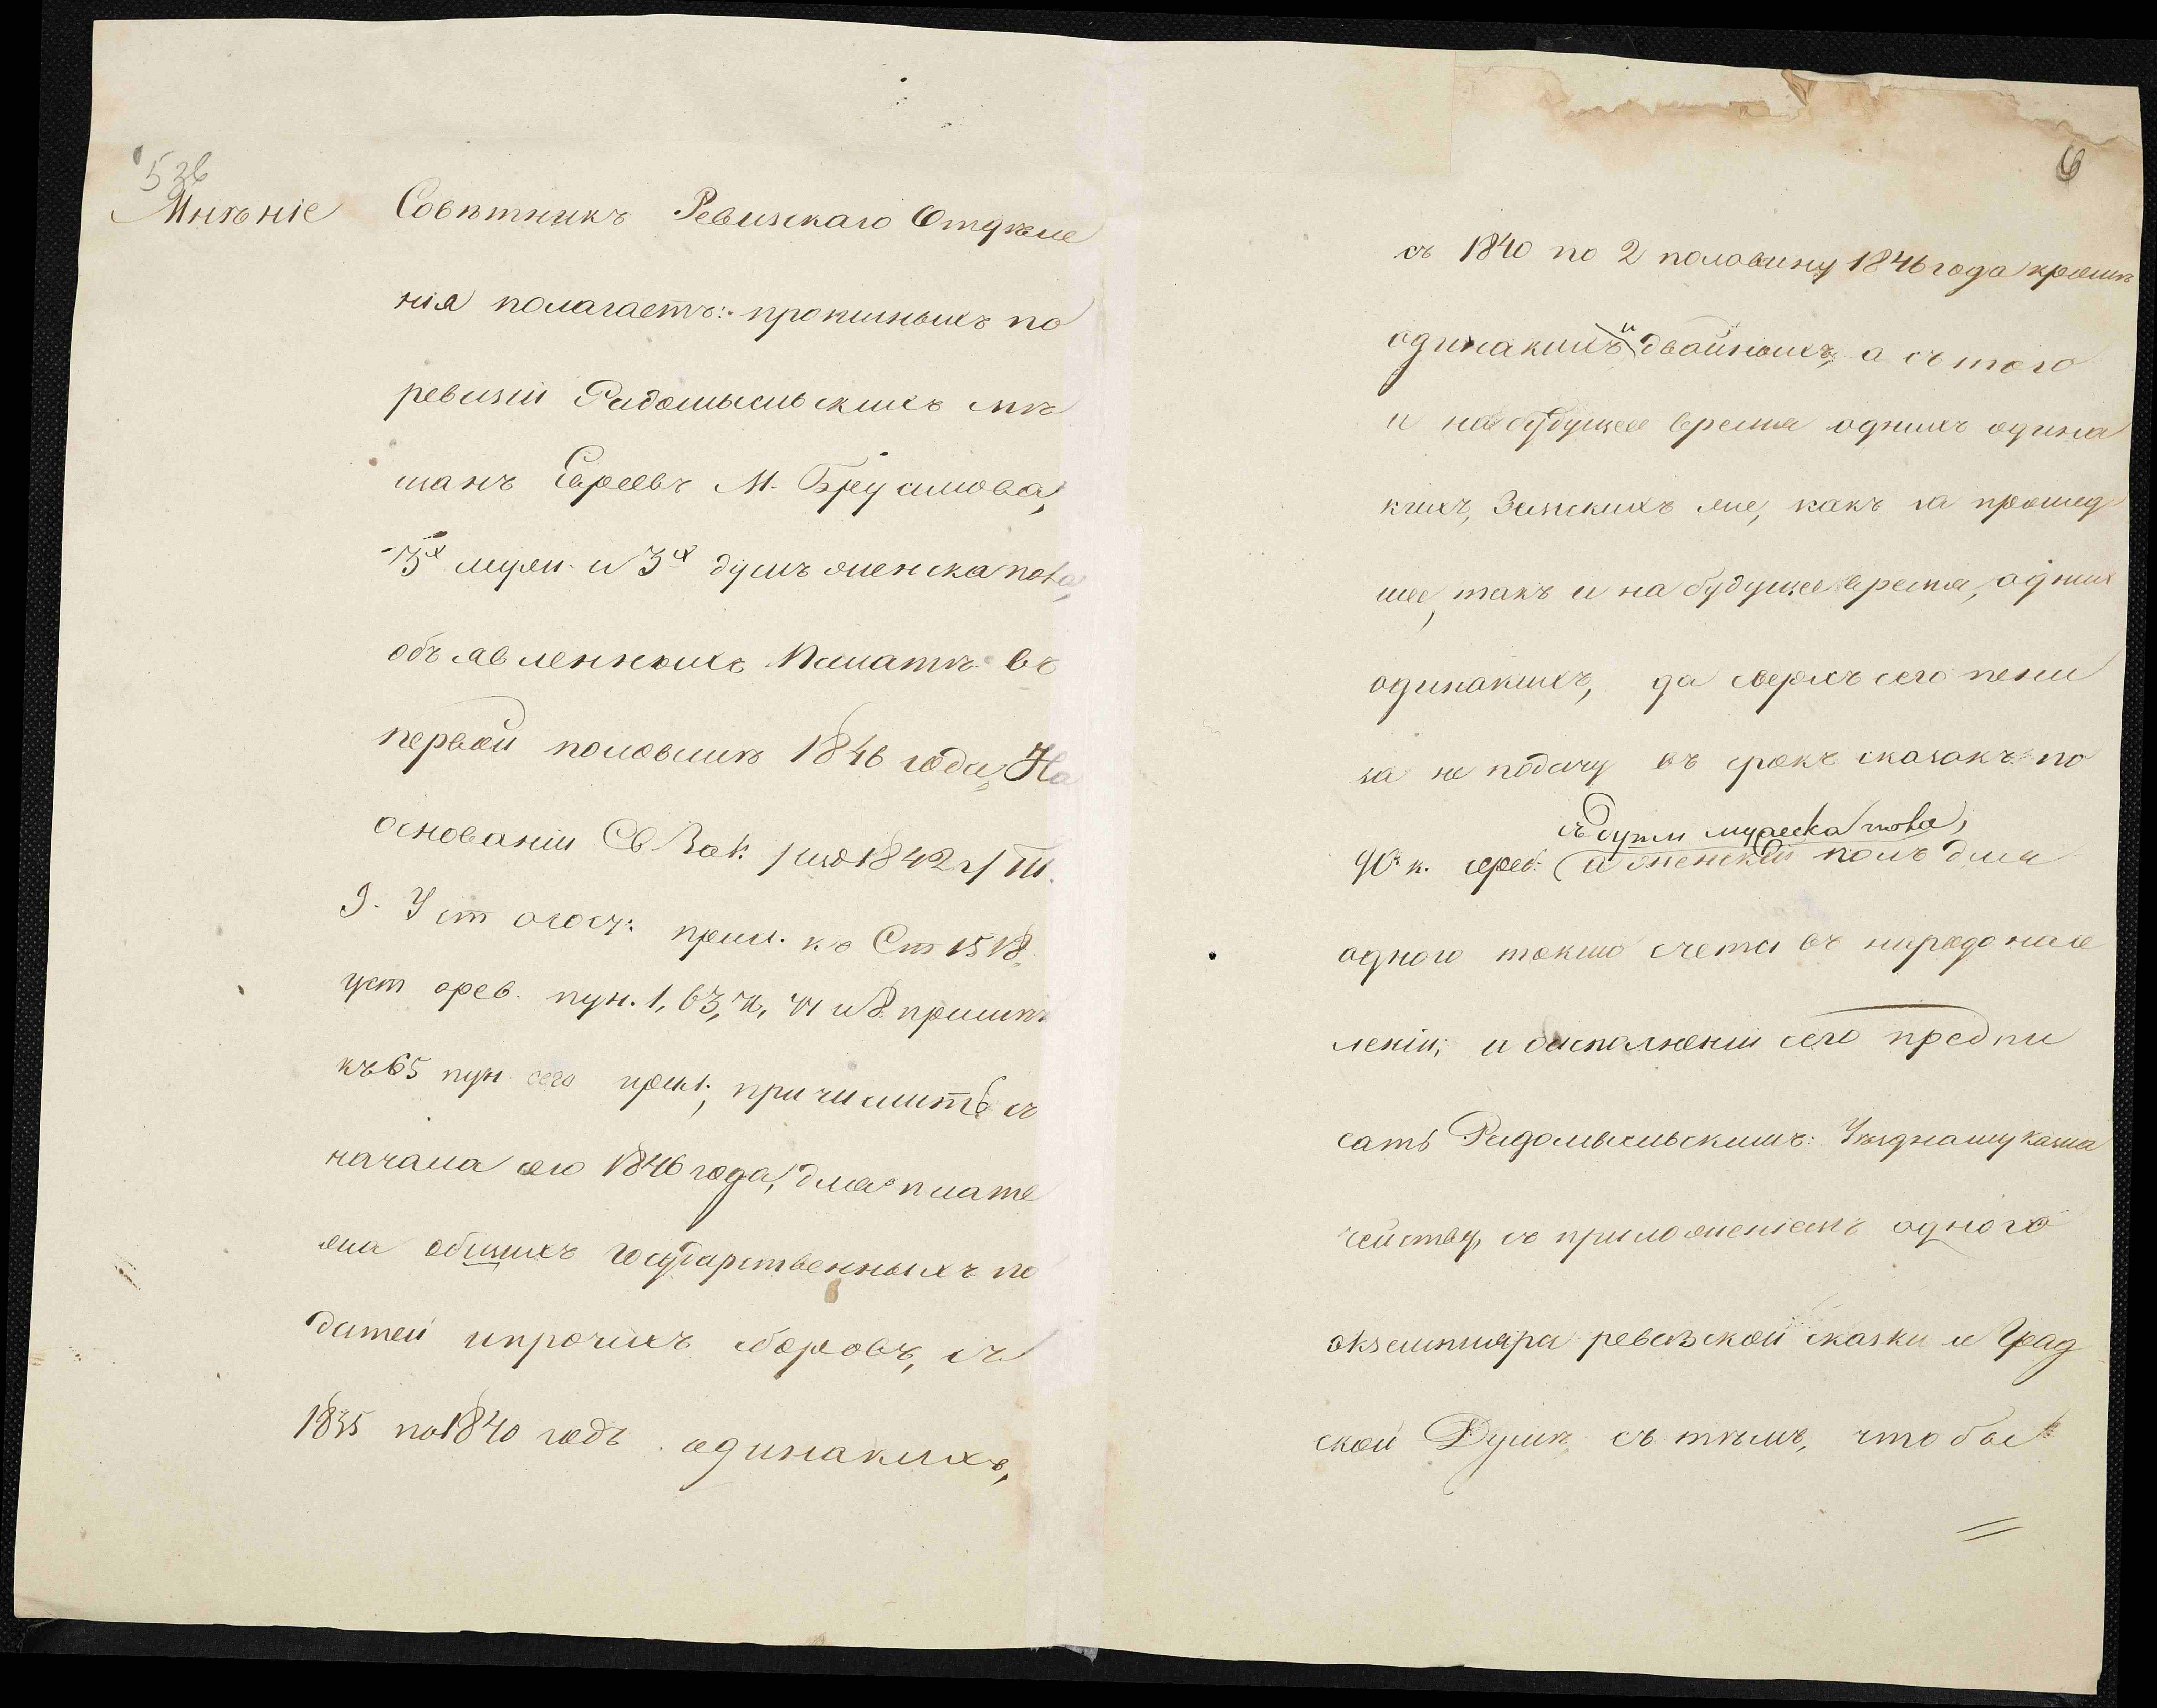 536
Мнѣніе
Совѣтникъ Ревизскаго Отдѣле
нія полагаетъ: прописныхъ по
ревизіи Радомысльскихъ мѣ
щанъ Евреевъ М. Брусилова,
3х муж. и 3х душъ женска пола,
объявленныхъ Палатѣ въ
первой половинѣ 1846 года, На
основаніи Св Зак: /изд 1842 г/ Т.
9. Уст о сост: прил. къ Ст 1518
уст о рев. пун. 1, 63, 71 и 8 примѣч
къ 65 пун. сего прил; причислить съ
начала сего 1846 года, для плате
жа общихъ государственныхъ по
датей и прочихъ сборовъ, съ
1835 по 1840 годъ одинакихъ,
6
съ 1840 по 2 половину 1846 года кромѣ
одинакихъ и двойныхъ, а съ того
и на будущее время однихъ одина
кихъ, Земскихъ же, какъ за прошед
шее, такъ и на будущее время, однихъ
одинакихъ, да сверхъ сего пени
за не подачу въ срокъ сказокъ по
съ души мужеска пола,
90 к. сереб: а женскій полъ для
одного токмо счета въ народонасе
леніи; и о исполненіи сего предпи
сать Радомысльскимъ: Уѣздному Казна
чейству, съ приложеніемъ одного
экземпляра ревизской сказки и Град
ской Думѣ съ тѣмъ, чтобы